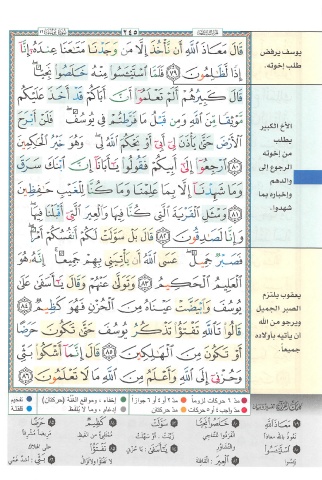 ٢٤٥
قَالَ مَعَاذَ اللَّهِ أَن نَّأْخُذَ إِلَّا مَن وَجَدْنَا مَتَاعَنَا عِندَهُ إِنَّا
إِذًا لَّظَالِمُونَ ٧٩ فَلَمَّا اسْتَيْئَسُوا مِنْهُ خَلَصُوا نَجِيًّا
قَالَ كَبِيرُهُمْ أَلَمْ تَعْلَمُوا أَنَّ أَبَاكُمْ قَدْ أَخَذَ عَلَيْكُم
مَّوْثِقًا مِّنَ اللَّهِ وَمِن قَبْلُ مَا فَرَّطتُمْ فِي يُوسُفَ فَلَنْ أَبْرَحَ
الْأَرْضَ حَتَّىٰ يَأْذَنَ لِي أَبِي أَوْ يَحْكُمَ اللَّهُ لِي وَهُوَ خَيْرُ الْحَاكِمِينَ
٨٠ ارْجِعُوا إِلَىٰ أَبِيكُمْ فَقُولُوا يَا أَبَانَا إِنَّ ابْنَكَ سَرَقَ
وَمَا شَهِدْنَا إِلَّا بِمَا عَلِمْنَا وَمَا كُنَّا لِلْغَيْبِ حَافِظِينَ
٨١ وَاسْأَلِ الْقَرْيَةَ الَّتِي كُنَّا فِيهَا وَالْعِيرَ الَّتِي أَقْبَلْنَا فِيهَا
وَإِنَّا لَصَادِقُونَ ٨٢ قَالَ بَلْ سَوَّلَتْ لَكُمْ أَنفُسُكُمْ أَمْرًا
فَصَبْرٌ جَمِيلٌ عَسَى اللَّهُ أَن يَأْتِيَنِي بِهِمْ جَمِيعًا إِنَّهُ هُوَ
الْعَلِيمُ الْحَكِيمُ ٨٣ وَتَوَلَّىٰ عَنْهُمْ وَقَالَ يَا أَسَفَىٰ عَلَىٰ
يُوسُفَ وَابْيَضَّتْ عَيْنَاهُ مِنَ الْحُزْنِ فَهُوَ كَظِيمٌ ٨٤
قَالُوا تَاللَّهِ تَفْتَأُ تَذْكُرُ يُوسُفَ حَتَّىٰ تَكُونَ حَرَضًا
أَوْ تَكُونَ مِنَ الْهَالِكِينَ ٨٥ قَالَ إِنَّمَا أَشْكُو بَثِّي
وَحُزْنِي إِلَى اللَّهِ وَأَعْلَمُ مِنَ اللَّهِ مَا لَا تَعْلَمُونَ ٨٦
يوسف يرفض
طلب إخوته.
الأخ الكبير
يطلب
من إخوته
الرجوع إلى
والدهم
وإخباره بما
شهدوا.
يعقوب يلتزم
الصبر الجميل
ويرجو من الله
أن يأتيه بأولاده
جميعاً.
مد ٦ حركات لزوماً مد ٢ أو ٤ أو ٦ جوازاً إخفاء، ومواقع الغنة (حركتان) تفخيم
مد واجب ٤ أو ٥ حركات مد حركتان إدغام، وما لا يلفظ قلقلة